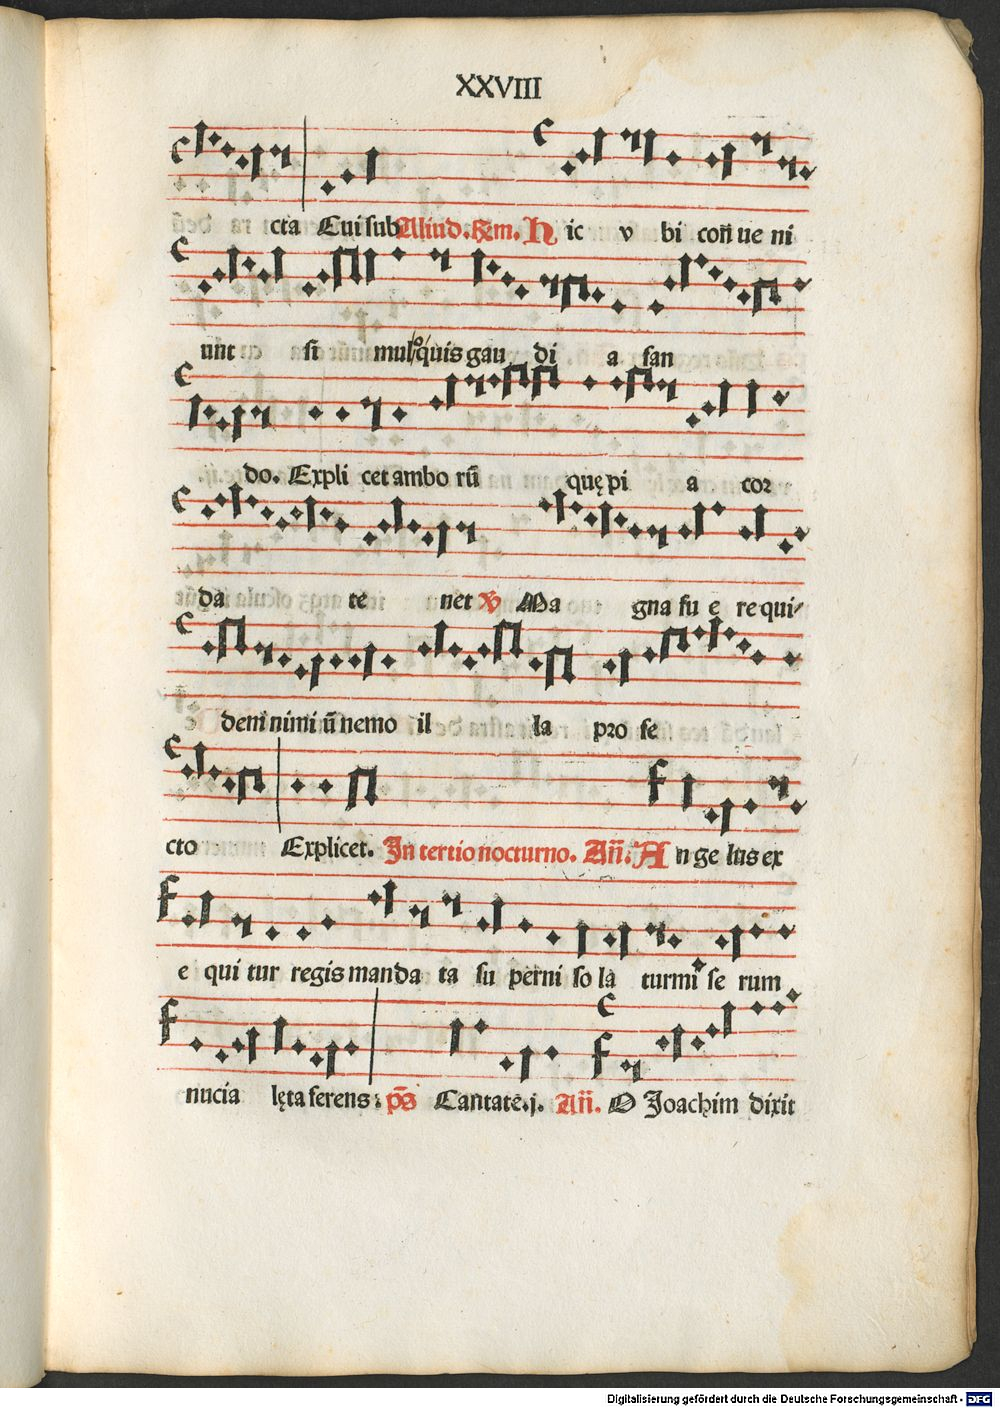 XXVIII
cta Cui sub Aliud. Rm. Hic v bi coñ ue ni
unt si mul quis gau di a fan
do. Expli cet ambo rũ quę pi a cor
da te net ℣ Ma gna fu e re qui
dem nimi ũ nemo il la pro fe
cto Explicet. In tertio nocturno. Añ. An ge lus ex
e qui tur regis manda ta su perni so la turmi se rum
nucia lęta ferens: ps̄ Cantate.j. Añ. O Joachim dixit
Digitalisierung gefördert durch die Deutsche Forschungsgemeinschaft - DFG